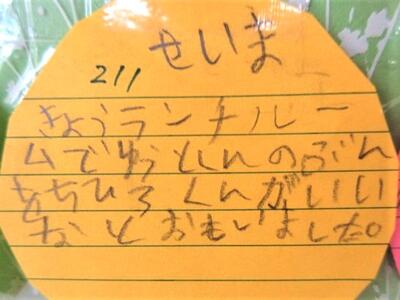 せいま
211
きょうランチルー
ムでゆうとくんのぶん
もちひろくんがいい
なとおもいました。